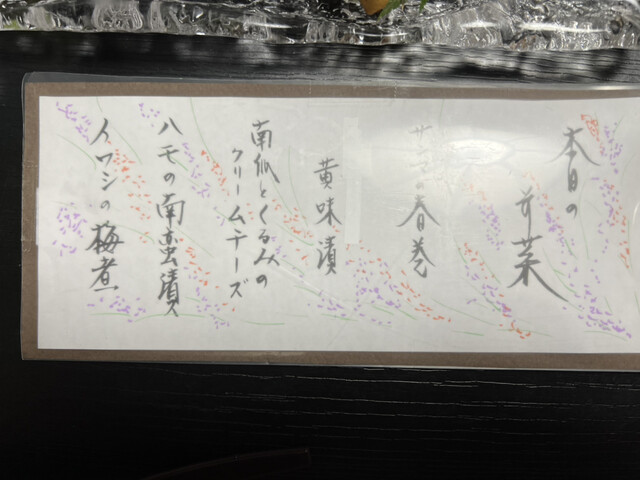 本日の
前菜
サンマの春巻
黄味漬
南瓜とくるみの
クリームチーズ
ハモの南蛮漬
イワシの梅煮